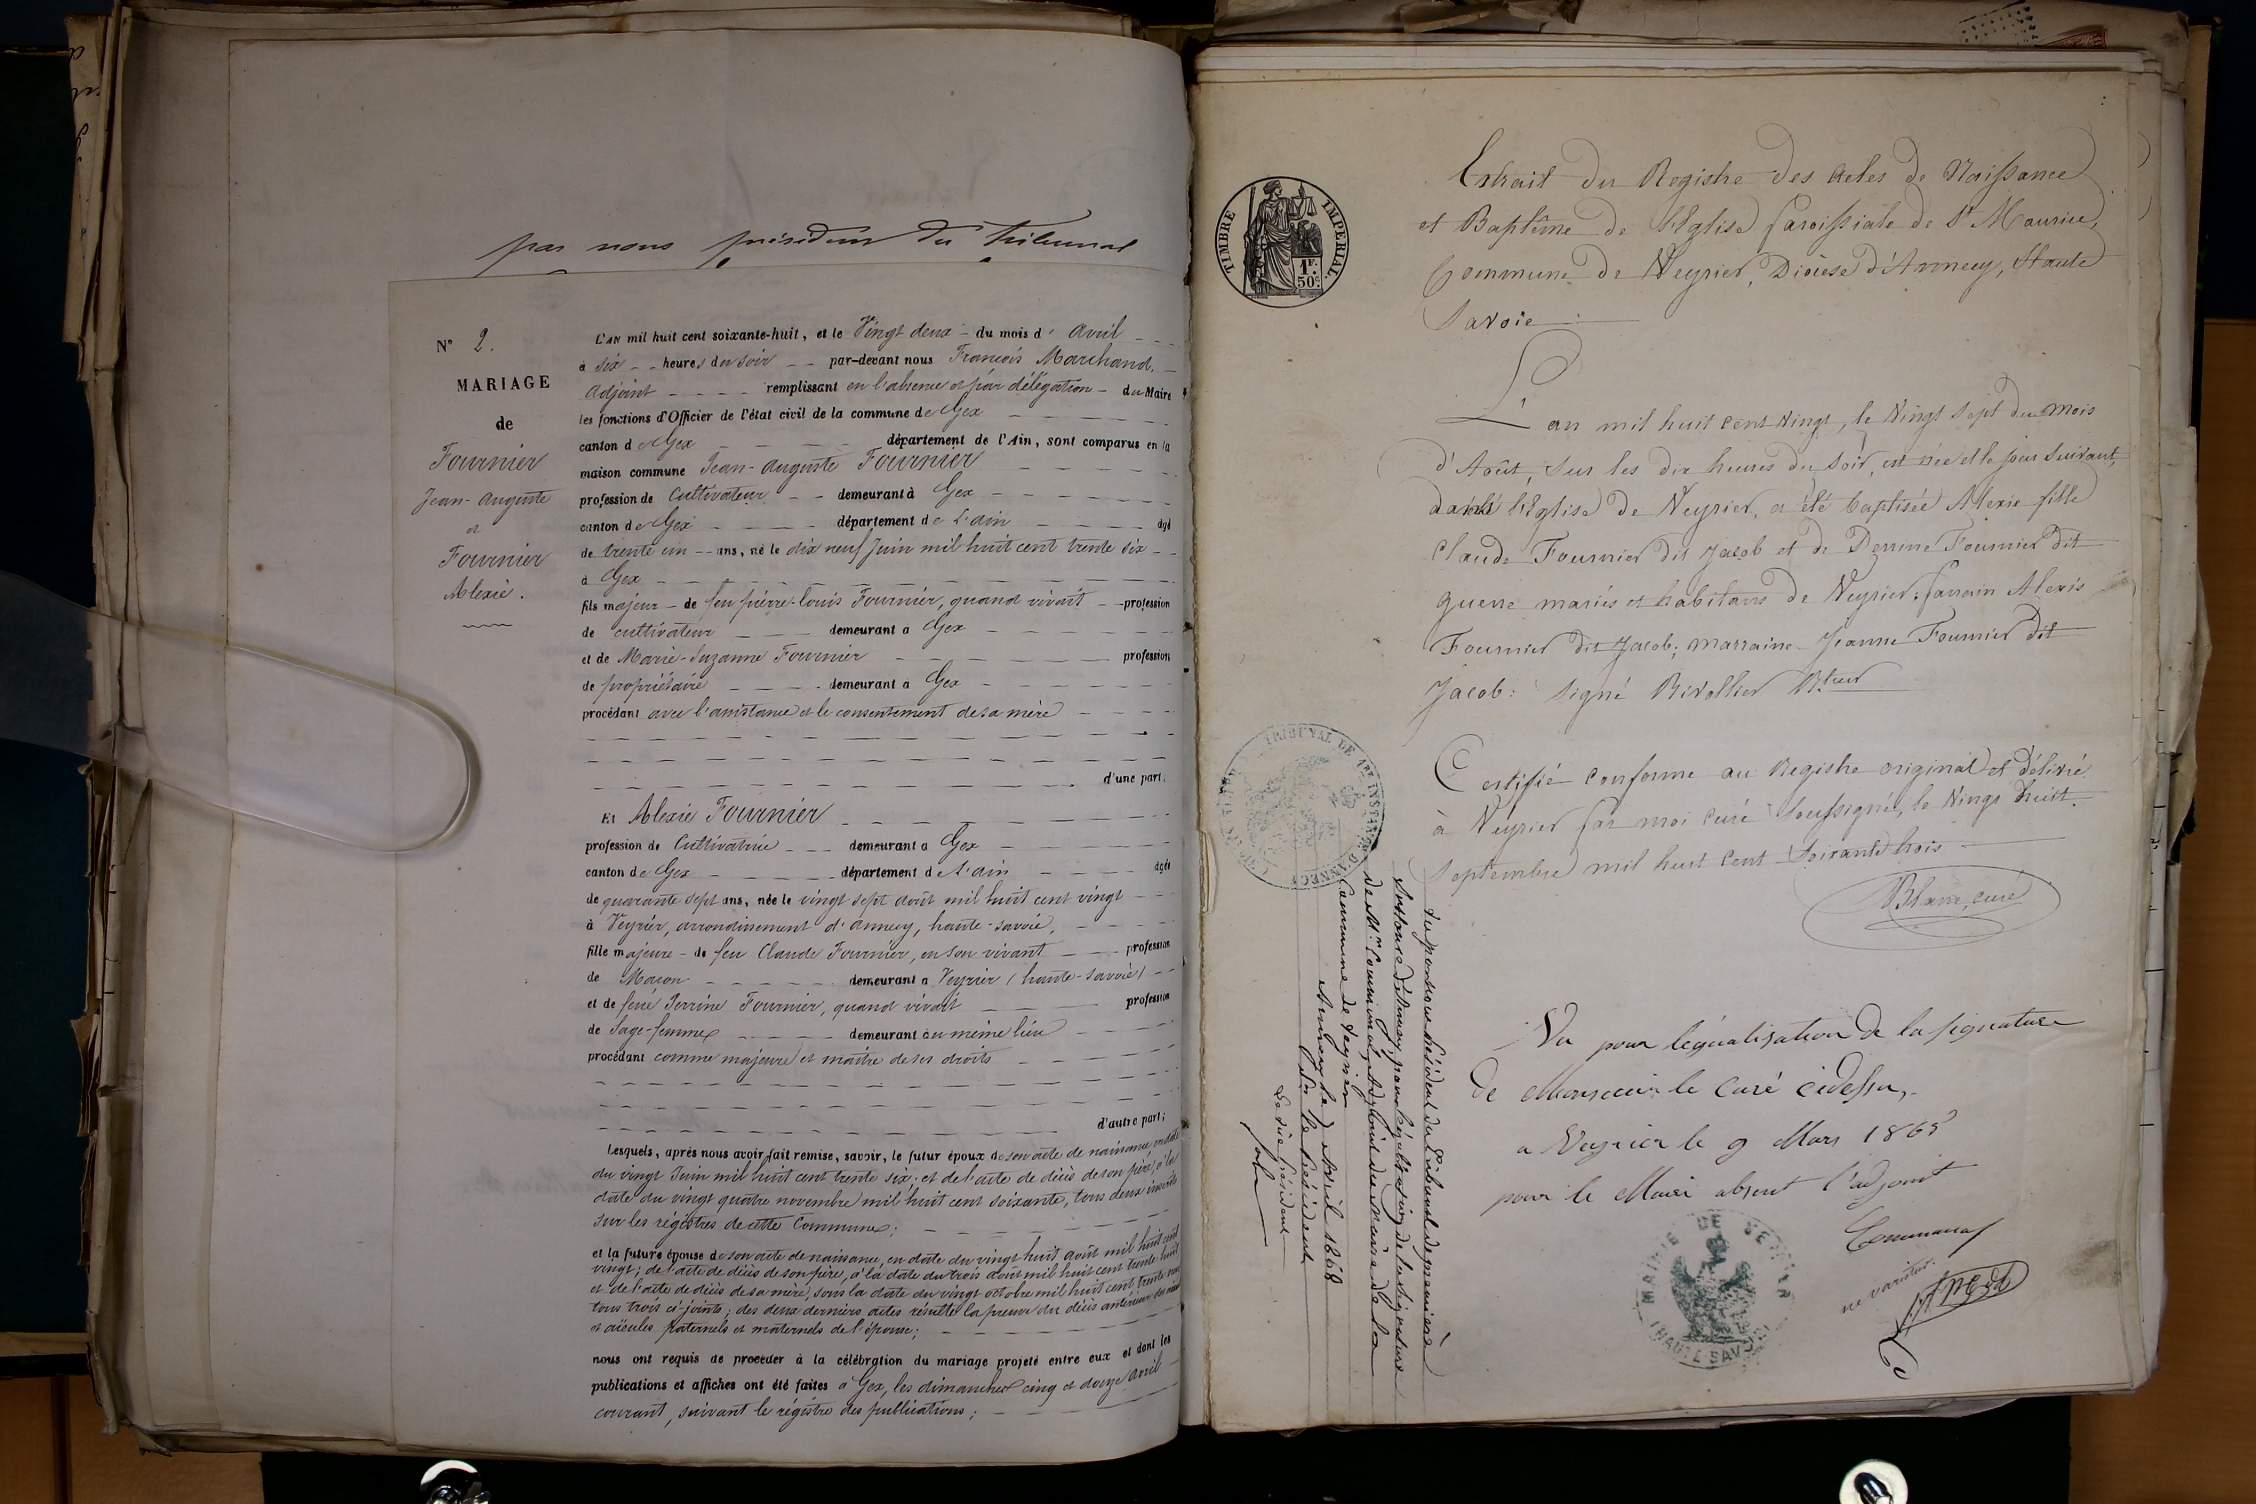 par nous président du tribunal
N° 2.
MARIAGE
de
Fournier
Jean-Auguste
et
Fournier
Alexie.
L'AN mil huit cent soixante-huit, et le Vingt deux du mois d' Avril
à six heures du soir par-devant nous François Marchand,
Adjoint remplissant en l'absence et par délégation du Maire
les fonctions d'Officier de l'état civil de la commune de Gex
canton de Gex département de l'Ain, sont comparus en la
maison commune Jean-Auguste Fournier
profession de Cultivateur demeurant à Gex
canton de Gex département de L'ain âgé
de trente un ans, né le dix neuf Juin mil huit cent trente six
à Gex
fils majeur de feu pierre-Louis Fournier, quand vivait profession
de cultivateur demeurant à Gex
et de Marie-Suzanne Fournier profession
de propriétaire demeurant à Gex
procédant avec l'assistance et le consentement de sa mère
d'une part;
Et Alexie Fournier
profession de Cultivatrice demeurant à Gex
canton de Gex département de L'ain âgée
de quarante sept ans, née le vingt sept août mil huit cent vingt
à Veyrier, arrondissement d'annecy, haute-savoie,
fille majeure de feu Claude Fournier, en son vivant profession
de Maçon demeurant à Veyrier (haute-savoie)
et de feue Perrine Fournier, quand vivait profession
de Sage-femme demeurant au même lieu
procédant comme majeure et maître de ses droits
d'autre part;
Lesquels, après nous avoir fait remise, savoir, le futur époux de son acte de naissance, en date
du vingt Juin mil huit cent trente six; et de l'acte de décès de son père, à la
date du vingt quatre novembre mil huit cent soixante, tous deux inscrits
sur les régistres de cette Commune;
et la future épouse de son acte de naissance, en date du vingt huit août mil huit cent
vingt; de l'acte de décès de son père, à la date du trois août mil huit cent trente huit
et de l'acte de décès de sa mère, sous la date du vingt octobre mil huit cent trente
tous trois ci-joints; des deux derniers actes résulte la preuve du décès antérieur des
et aïeules paternels et maternels de l'épouse;
nous ont requis de procéder à la célébration du mariage projeté entre eux et dont les
publications et affiches ont été faites à Gex, les dimanches cinq et douze avril
courant, suivant le régistre des publications;
TIMBRE IMPERIAL.
1F.
50c.
Extrait du Registre des Actes de Naissance
et Baptême de l'Eglise paroissiale de St Maurice,
Commune de Veyrier, Diocèse d'Annecy, Haute
Savoie
L'an mil huit cent vingt, le vingt sept du mois
d'Août, sur les dix heures du soir, est née et le jour suivant,
dans l'Eglise de Veyrier, a été baptisée Alexie fille
Claude Fournier dit Jacob et de Perrine Fournier dit
guerre mariés et habitans de Veyrier: parrain Alexis
Fournier dit Jacob; marraine Jeanne Fournier dit
Jacob: signé Rivollier
Certifié conforme au Registre original et délivré
à Veyrier par moi curé soussigné, le vingt huit
Septembre mil huit cent soixante trois
Blanc, curé
Vu pour légalisation de la signature
de Monsieur le Curé cidessus,
a Veyrier le 9 Mars 1865
pour le Maire absent l'adjoint
ne varietur
MAIRIE DE VEYRIER
(HAUTE SAVOIE)
TRIBUNAL DE 1RE INSTANCE D'ANNECY
Vu par nous Président du Tribunal de première
Instance d'Annecy, pour légalisation de la signature
de Mr Communal, adjoint du Maire de la
Commune de Veyrier
Annecy le 7 Avril 1868
Pr le Président
Le Vice président